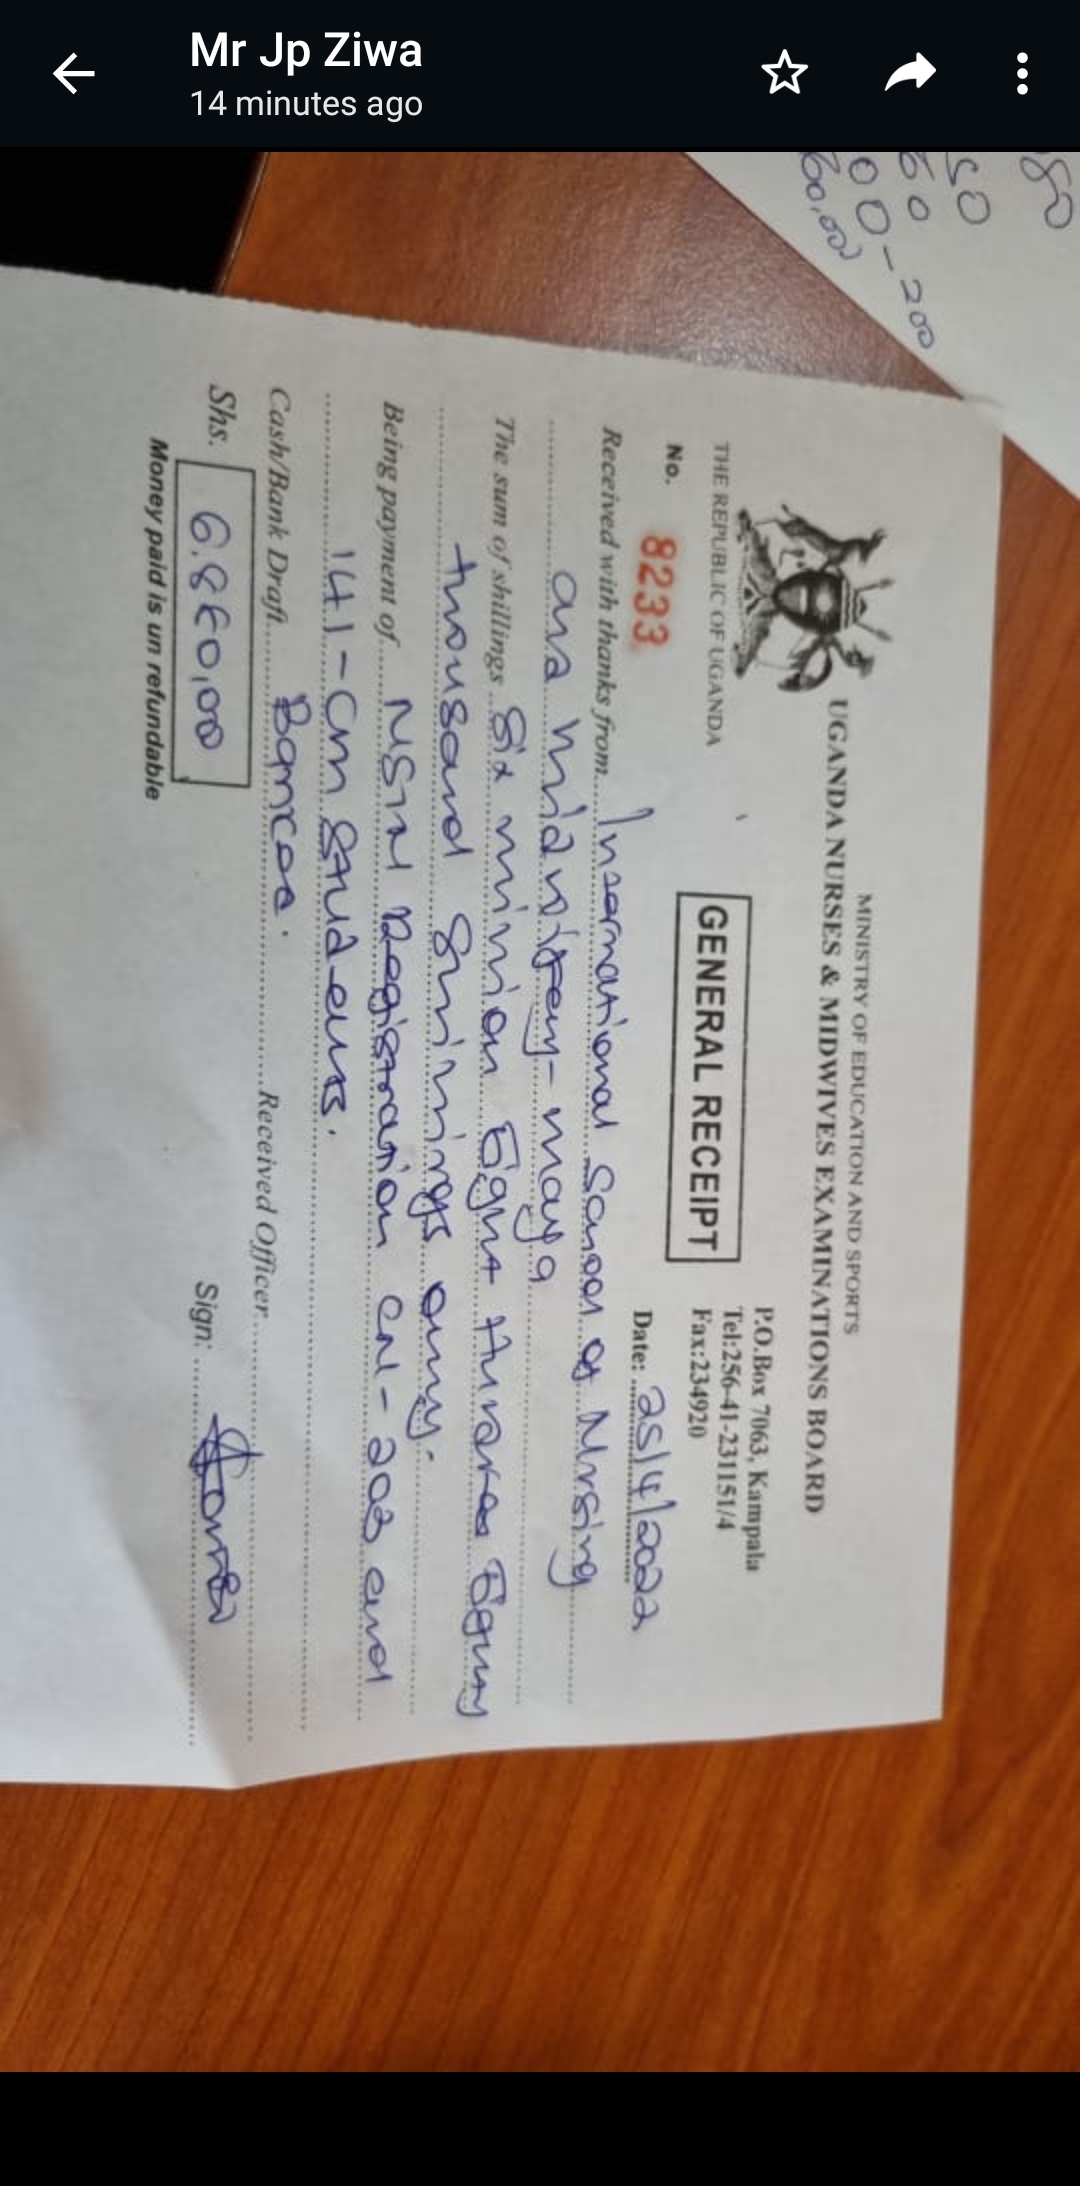 Mr Jp Ziwa
14 minutes ago
80
50
60
00-200
60,000
MINISTRY OF EDUCATION AND SPORTS
UGANDA NURSES & MIDWIVES EXAMINATIONS BOARD
THE REPUBLIC OF UGANDA
P.O.Box 7063, Kampala
Tel:256-41-231151/4
Fax:234920
GENERAL RECEIPT
No. 8233
Date: 25/4/2022
Received with thanks from International School of Nursing
and Midwifery-Maya
The sum of shillings Six million Eight Hundred Eighty
thousand Shillings only.
Being payment of NSIN Registration CN-203 and
141-CM Students.
Cash/Bank Draft Received Officer
Shs. 6.880,000
Sign:
Money paid is un refundable